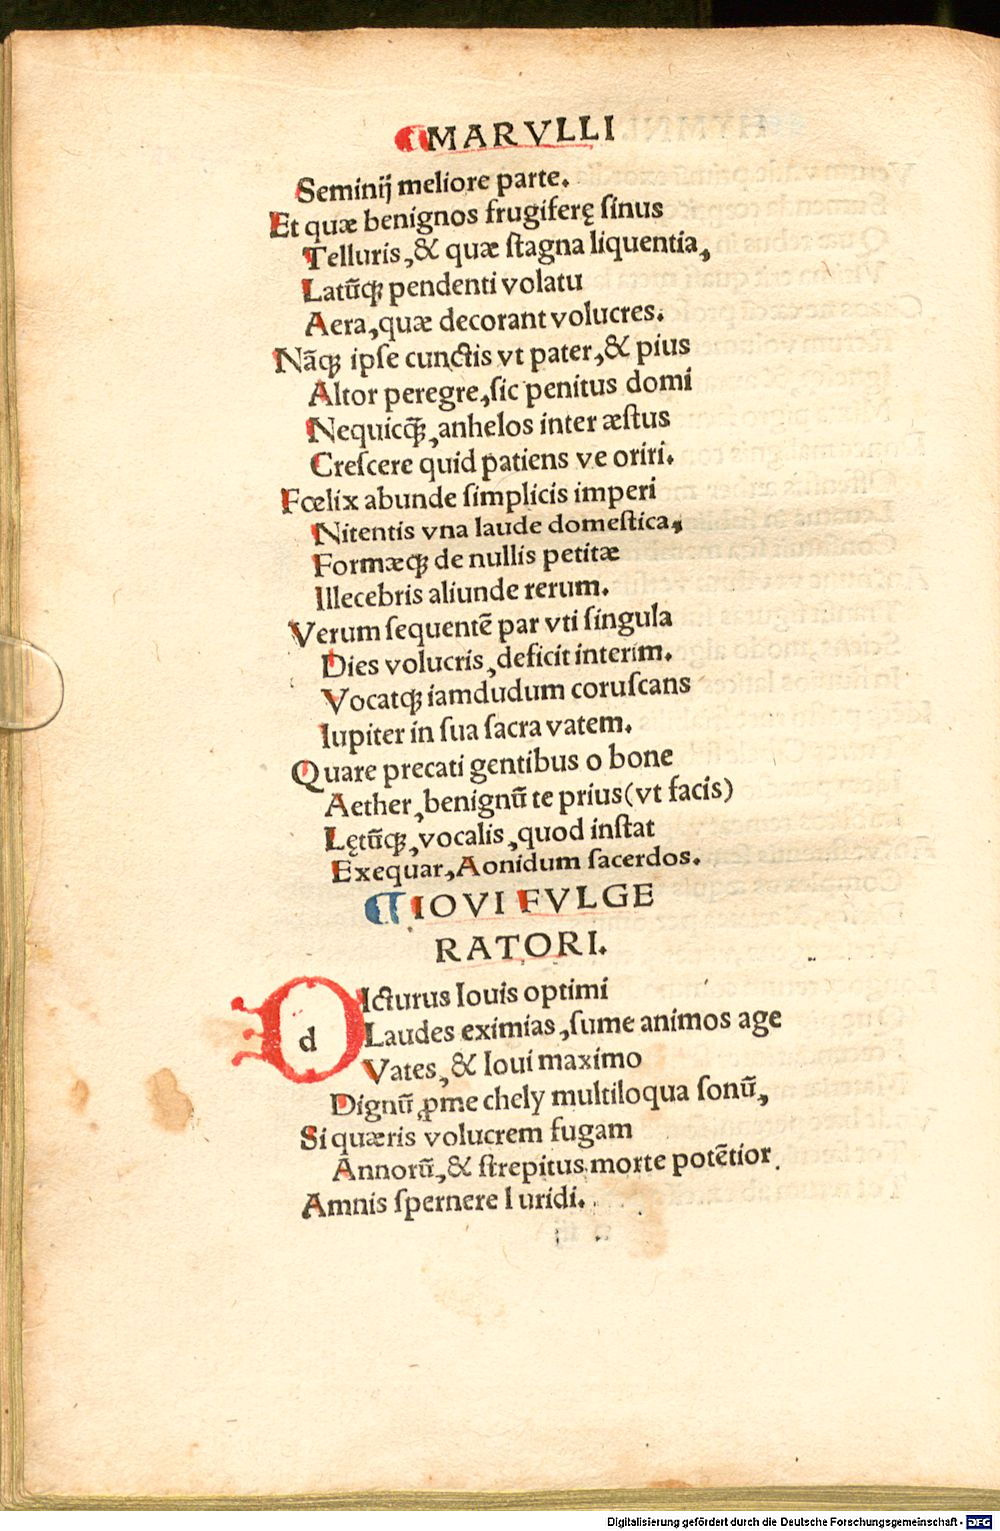 MARVLLI
Seminij meliore parte.
Et quæ benignos frugiferę sinus
Telluris, & quæ stagna liquentia,
Latūq; pendenti volatu
Aera, quæ decorant volucres.
Nāq; ipse cunctis vt pater, & pius
Altor peregre, sic penitus domi
Nequicq̄, anhelos inter æstus
Crescere quid patiens ve oriri.
Fœlix abunde simplicis imperi
Nitentis vna laude domestica,
Formæq; de nullis petitæ
Illecebris aliunde rerum.
Verum sequentē par vti singula
Dies volucris, deficit interim.
Vocatq; iamdudum coruscans
Iupiter in sua sacra vatem.
Quare precati gentibus o bone
Aether, benignū te prius (vt facis)
Lętūq;, vocalis, quod instat
Exequar, Aonidum sacerdos.
IOVI FVLGE
RATORI.
dIcturus Iouis optimi
Laudes eximias, sume animos age
Vates, & Ioui maximo
Dignū ꝓme chely multiloqua sonū,
Si quæris volucrem fugam
Annorū, & strepitus morte potētior.
Amnis spernere luridi.
Digitalisierung gefördert durch die Deutsche Forschungsgemeinschaft - DFG